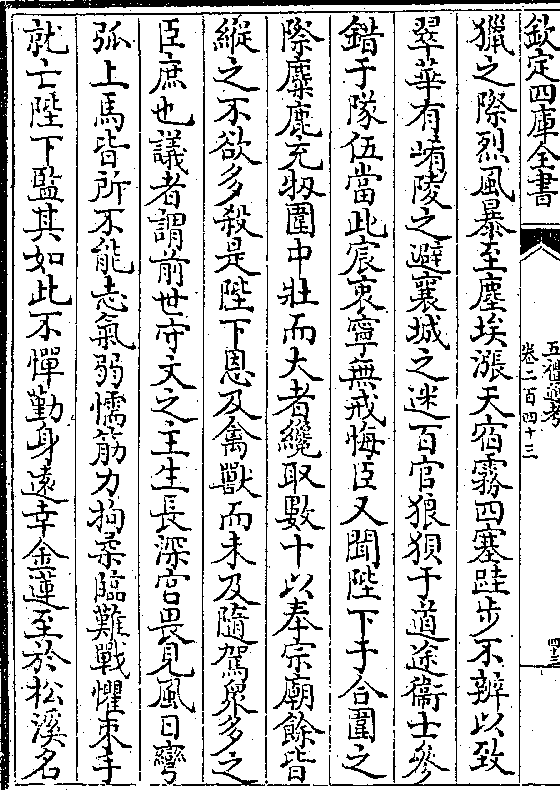 欽定四庫全書
五禮通考
卷二百四十三
獵之際烈風暴至塵埃漲天宿霧四塞跬步不辨以致
翠華有崤陵之避襄城之迷百官狼狽于道途衞士參
錯于隊伍當此宸衷寧無戒悔臣又聞陛下于合圍之
際麋鹿充牣圍中壯而大者纔取數十以奉宗廟餘皆
縱之不欲多殺是陛下恩及禽獸而未及隨駕衆多之
臣庶也議者謂前世守文之主生長深宮畏見風日彎
弧上馬皆所不能志氣弱懦筋力拘柔臨難戰懼束手
就亡陛下監其如此不憚勤身遠幸金蓮至於松漠名